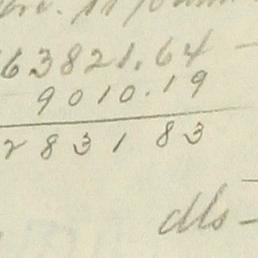 63821.64 -
9010.19
2831 83
dls -